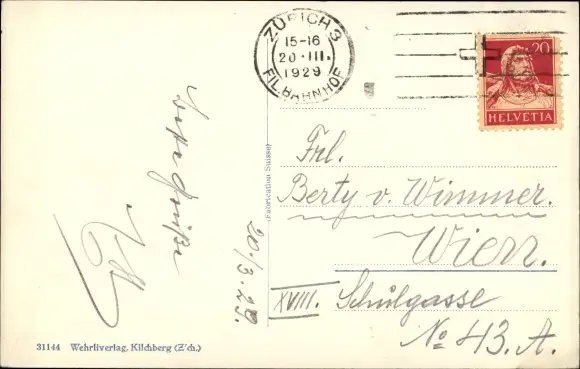 ZÜRICH 3
15-16
20.III.
1929
FIL. BAHNHOF
20
HELVETIA
(Fabrication Suisse)
20/3.29.
Frl.
Berty v. Wimmer.
Wien.
XVIII. Schulgasse
No 43. A.
31144 Wehrliverlag, Kilchberg (Z'ch.)